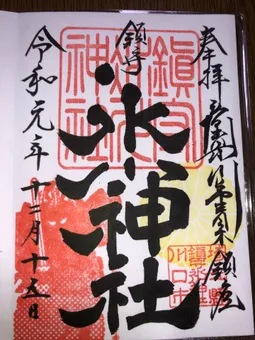 奉拝
鎮座
鎮守
氷川神社
鎮守氷川神社
川口市
令和元年十二月十五日